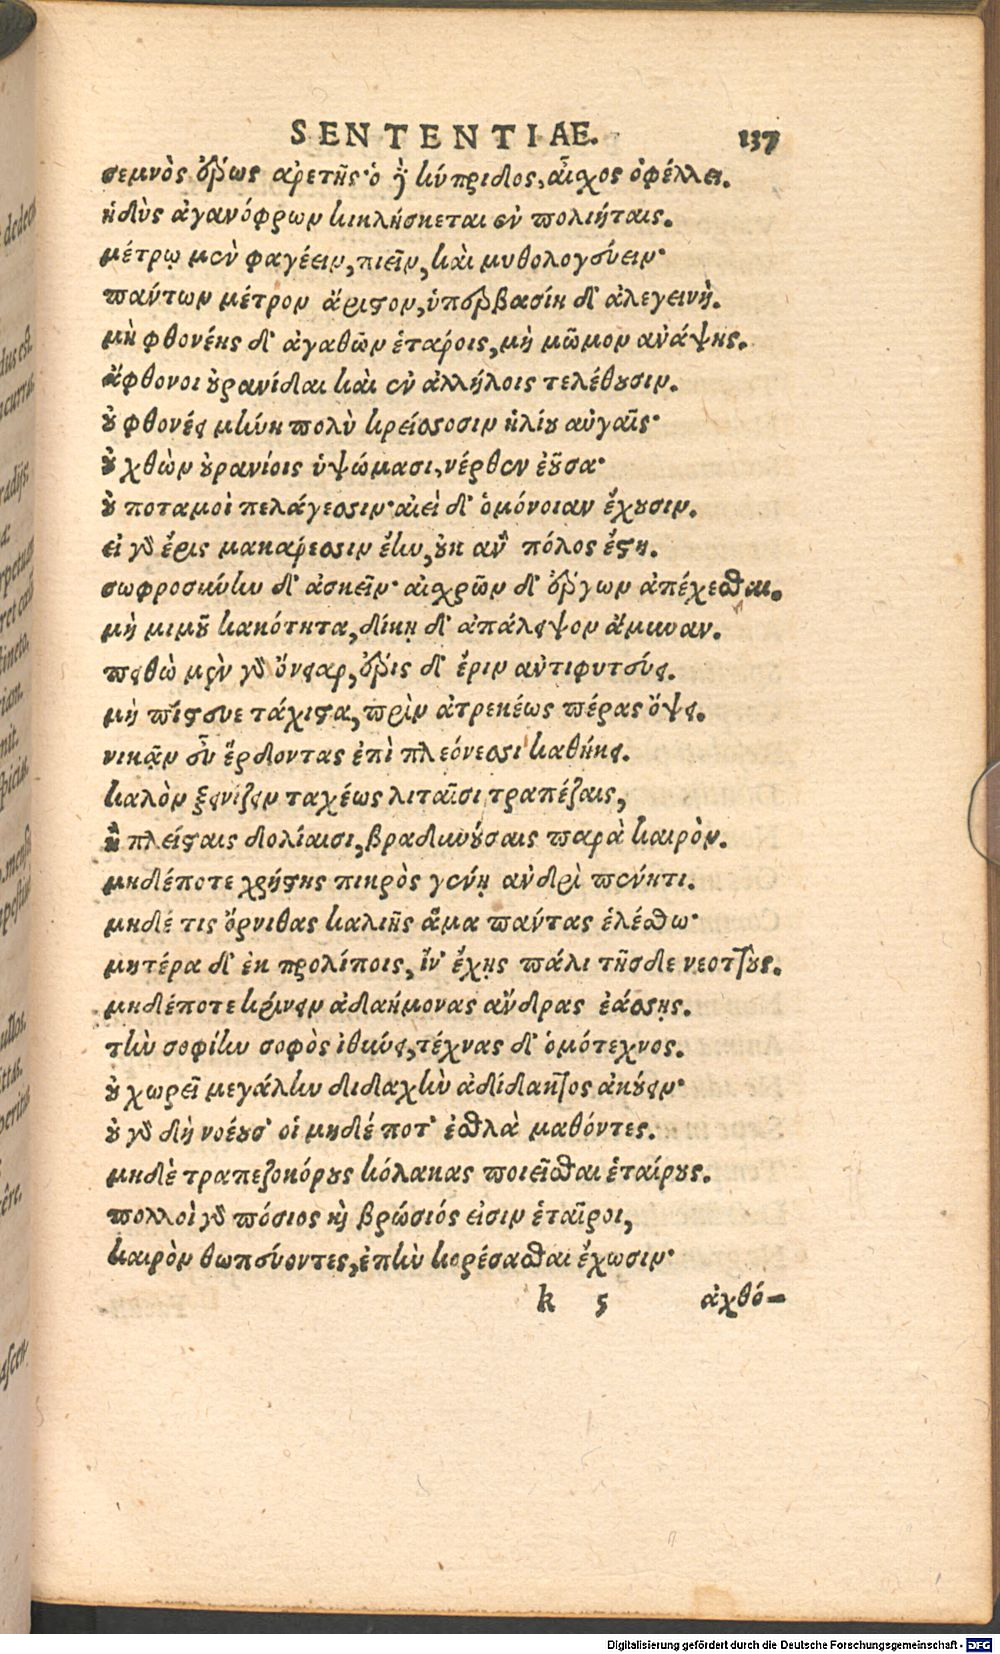 SENTENTIAE. 137
σεμνὸς ἔρως ἀρετῆς· ὁ δὲ κύπριδος, αἶσχος ὀφέλλει.
ἡδὺς ἀγανόφρων κικλήσκεται ἐν πολιήταις.
μέτρῳ μὲν φαγέειν, πιεῖν, καὶ μυθολογεύειν·
πάντων μέτρον ἄριστον, ὑπερβασίη δ' ἀλεγεινή.
μὴ φθονέῃς δ' ἀγαθῶν ἑτάροις, μὴ μῶμον ἀνάψῃς.
ἄφθονοι οὐρανίδαι καὶ ἐν ἀλλήλοις τελέθουσιν.
οὐ φθονέει μήνη πολὺ κρείσσοσιν ἡλίου αὐγαῖς·
οὐ χθὼν οὐρανίοις ὑψώμασι, νέρθεν ἐοῦσα·
οὐ ποταμοὶ πελάγεσσιν· αἰεὶ δ' ὁμόνοιαν ἔχουσιν.
εἰ γὰρ ἔρις μακάρεσσιν ἔην, οὐκ ἂν πόλος ἔστη.
σωφροσύνην δ' ἀσκεῖν· αἰσχρῶν δ' ἔργων ἀπέχεσθαι.
μὴ μιμοῦ κακότητα, δίκῃ δ' ἀπόλειψον ἄμυναν.
πειθὼ μὲν γὰρ ὄνειαρ, ἔρις δ' ἔριν ἀντιφυτεύει.
μὴ πίστευε τάχιστα, πρὶν ἀτρεκέως πέρας ὄψει.
νικᾷν εὖ ἔρδοντας ἐπὶ πλεόνεσσι καθήκει.
καλὸν ξεινίζειν ταχέως λιταῖσι τραπέζαις,
ἢ πλείσταις δολίαισι, βραδυνούσαις παρὰ καιρὸν.
μηδέποτε χρήστης πικρὸς γένῃ ἀνδρὶ πένητι.
μηδέ τις ὄρνιθας καλιῆς ἅμα πάντας ἑλέσθω·
μητέρα δ' ἐκ προλίποις, ἵν' ἔχῃς πάλι τῆσδε νεοττούς.
μηδέποτε κρίνειν ἀδαήμονας ἄνδρας ἐάσσῃς.
τὴν σοφίην σοφὸς ἰθύνει, τέχνας δ' ὁμότεχνος.
οὐ χωρεῖ μεγάλην διδαχὴν ἀδίδακτος ἀκούειν·
οὐ γὰρ δὴ νοέουσ' οἱ μηδέ ποτ' ἐσθλὰ μαθόντες.
μηδὲ τραπεζοκόρους κόλακας ποιεῖσθαι ἑταίρους.
πολλοὶ γὰρ πόσιος καὶ βρώσιός εἰσιν ἑταῖροι,
καιρὸν θωπεύοντες, ἐπὴν κορέσασθαι ἔχωσιν·
k 5 ἀχθό-
dedec
dus est.
curras.
radijs.
perpetuam
ineto.
riam.
nit.
spicis.
ullos.
peritus
ascen
Digitalisierung gefördert durch die Deutsche Forschungsgemeinschaft - DFG